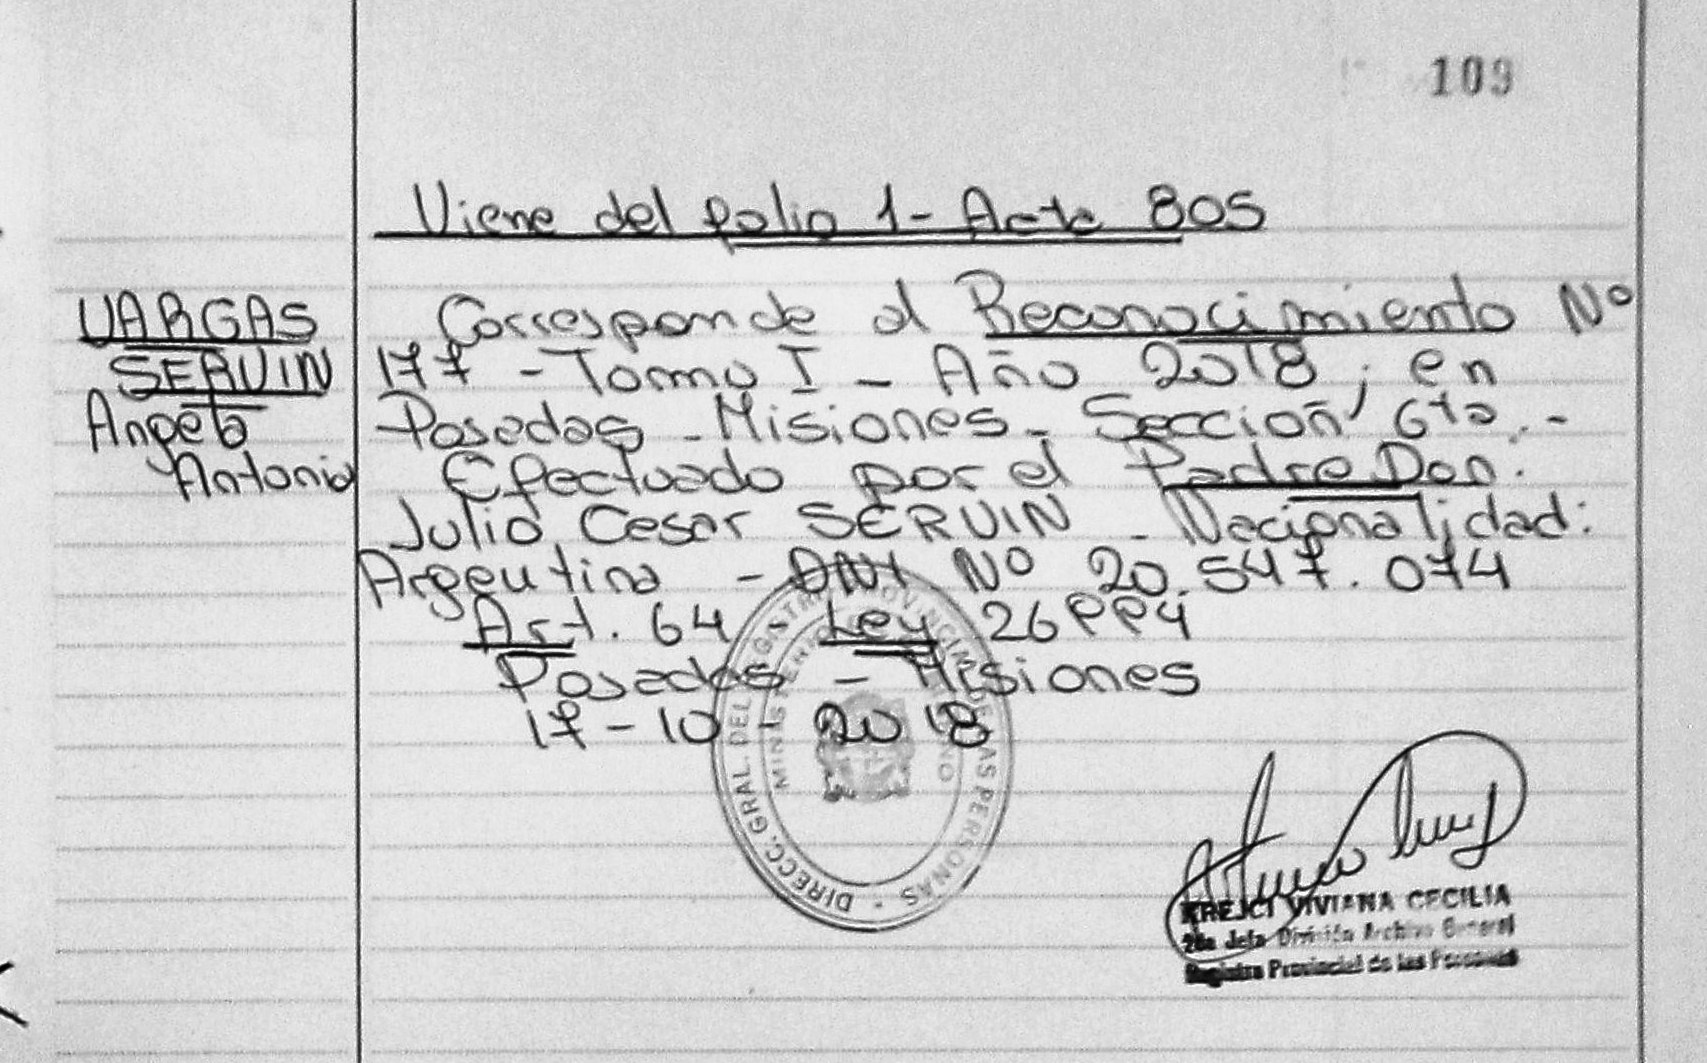 109
Viene del folio 1 - Acta 805
VARGAS
SERVIN
Angela
Antonia
Corresponde al Reconocimiento Nº
177 - Tomo I - Año 2018, en
Posadas - Misiones - Sección 6ta. -
Efectuado por el Padre Don.
Julio Cesar SERVIN - Nacionalidad:
Argentina - DNI Nº 20.547.074
Art. 64 - Ley 26994
Posadas - Misiones
17-10-2018
DIRECC. GRAL. DEL REGISTRO PROVINCIAL DE LAS PERSONAS -
KREJCI VIVIANA CECILIA
2da Jefa División Archivo General
Registro Provincial de las Personas